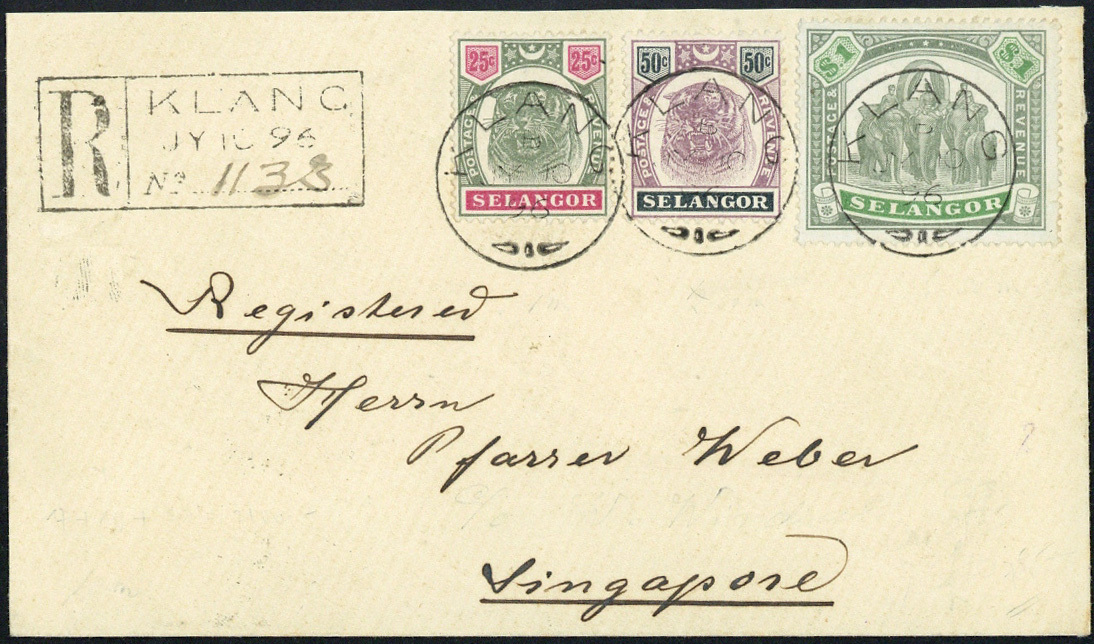 R
KLANG
JY 10 96
No 1138
25c 25c
POSTAGE & REVENUE
SELANGOR
KLANG
50c 50c
POSTAGE & REVENUE
SELANGOR
KLANG
$1 $1
POSTAGE & REVENUE
SELANGOR
KLANG
Registered
Herrn
Pfarrer Weber
Singapore